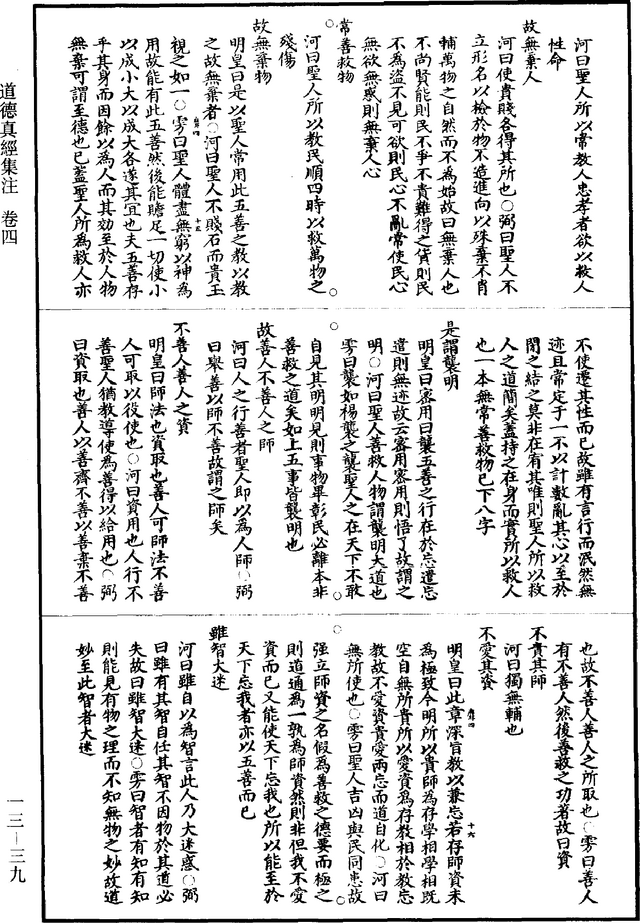 河曰聖人所以常教人忠孝者欲以救人
性命
故無棄人
河曰使貴賤各得其所也○弼曰聖人不
立形名以檢於物不造進向以殊棄不肖
輔萬物之自然而不為始故曰無棄人也
不尚賢能則民不爭不貴難得之貨則民
不為盜不見可欲則民心不亂常使民心
無欲無惑則無棄人心
常善救物
河曰聖人所以教民順四時以救萬物之
殘傷
故無棄物
明皇曰是以聖人常用此五善之教以教
之故無棄者○河曰聖人不賤石而貴玉
視之如一○雱曰聖人體盡無窮以神為
用故能有此五善然後能贍足一切使小
以成小大以成大各遂其宜也夫五善存
乎其身而因餘以為人而其効至於人物
無棄可謂至德也已蓋聖人所為救人亦
不使遷其性而已故雖有言行而泯然無
迹且常定于一不以計數亂其心以至於
閉之結之莫非在宥其唯則聖人所以救
人之道簡矣蓋持之在身而實所以救人
也一本無常善救物已下八字
是謂襲明
明皇曰密用曰襲五善之行在於忘遣忘
遣則無迹故云密用密用則悟了故謂之
明○河曰聖人善救人物謂襲明大道也
雱曰襲如裼襲之襲聖人之在天下不敢
自見其明明見則事物畢彰民必離本非
善救之道矣如上五事皆襲明也
故善人不善人之師
河曰人之行善者聖人即以為人師○弼
曰舉善以師不善故謂之師矣
不善人善人之資
明皇曰師法也資取也善人可師法不善
人可取以役使也○河曰資用也人行不
善聖人猶教導使為善得以給用也○弼
曰資取也善人以善齊不善以善棄不善
也故不善人善人之所取也○雱曰善人
有不善人然後善救之功著故曰資
不貴其師
河曰獨無輔也
不愛其資
明皇曰此章深旨教以兼忘若存師資未
為極致今明所以貴師為存學相學相既
空自無所貴所以愛資為存教相於教忘
教故不愛資貴愛兩忘而道自化○河曰
無所使也○雱曰聖人吉凶與民同患故
强立師資之名假為善救之德要而極之
則道通為一孰為師資然則非但我不愛
資而已又能使天下忘我也所以能至於
天下忘我者亦以五善而已
雖智大迷
河曰雖自以為智言此人乃大迷惑○弼
曰雖有其智自任其智不因物於其道必
失故曰雖智大迷○雱曰智者有知有知
則能見有物之理而不知無物之妙故道
妙至此智者大迷
道德真經集注　卷四
一三－三九